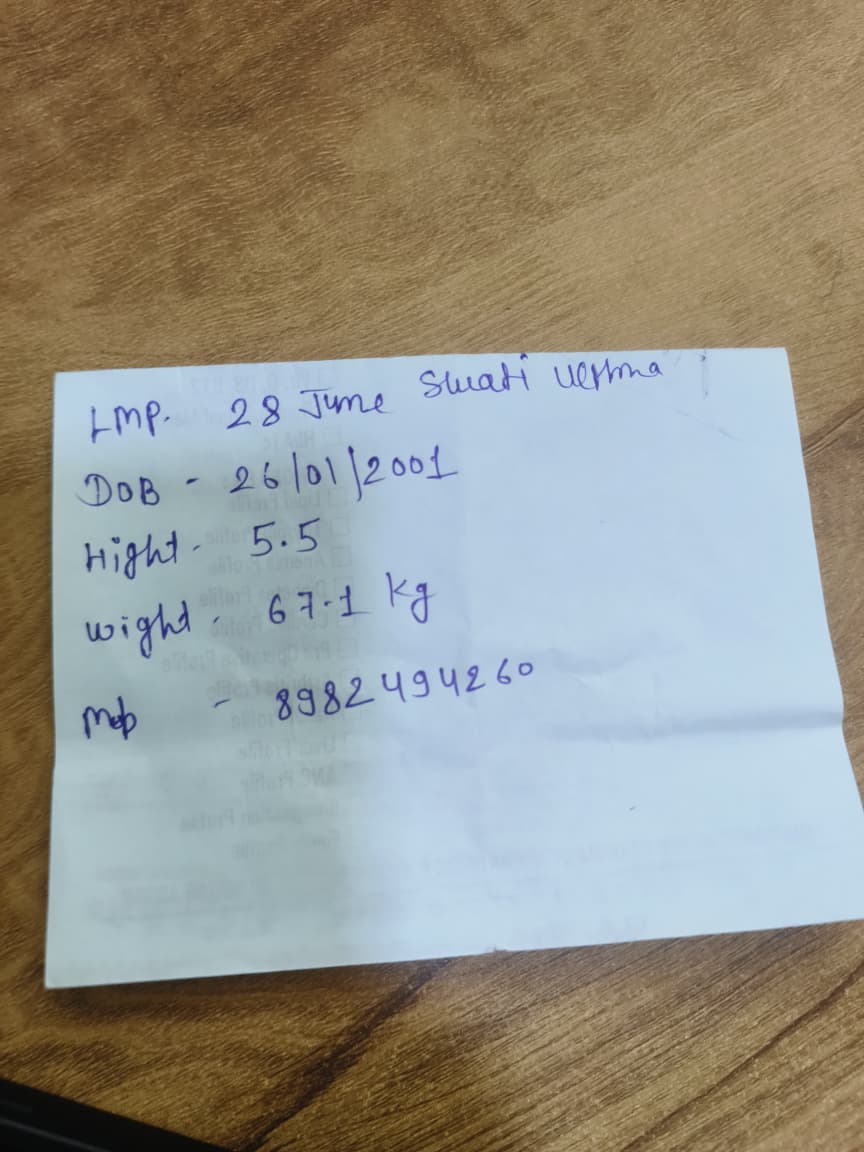 LMP. 28 June Swati Verma
DOB - 26/01/2001
Hight - 5.5
wight - 67.1 kg
Mob - 8982494260